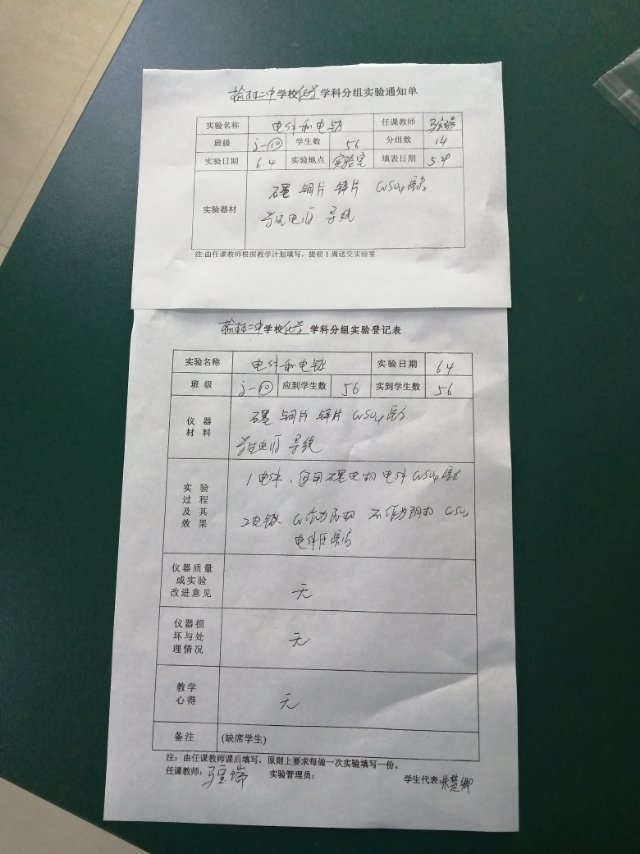 二中学校化学学科分组实验通知单
实验名称 电解和电镀 任课教师
班级 学生数 56 分组数 14
实验日期 6.4 实验地点 实验室 填表日期
实验器材 石墨 铜片 锌片 CuSO4溶液
学生电源 导线
注:由任课教师根据教学计划填写，提前1周送交实验室
二中学校化学学科分组实验登记表
实验名称 电解和电镀 实验日期 6.4
班 级 应到学生数 56 实到学生数 56
仪器材料 石墨 铜片 锌片 CuSO4溶液
学生电源 导线
实验过程及其效果 1电解、用石墨电极 电解 CuSO4溶液
2电镀 Cu 作阳极 作阴极 CuSO4
电解质溶液
仪器质量或实验改进意见 无
仪器损坏与处理情况 无
教学心得 无
备注 (缺席学生)
注：由任课教师课后填写，原则上要求每做一次实验填写一份。
任课教师: 实验管理员: 学生代表: